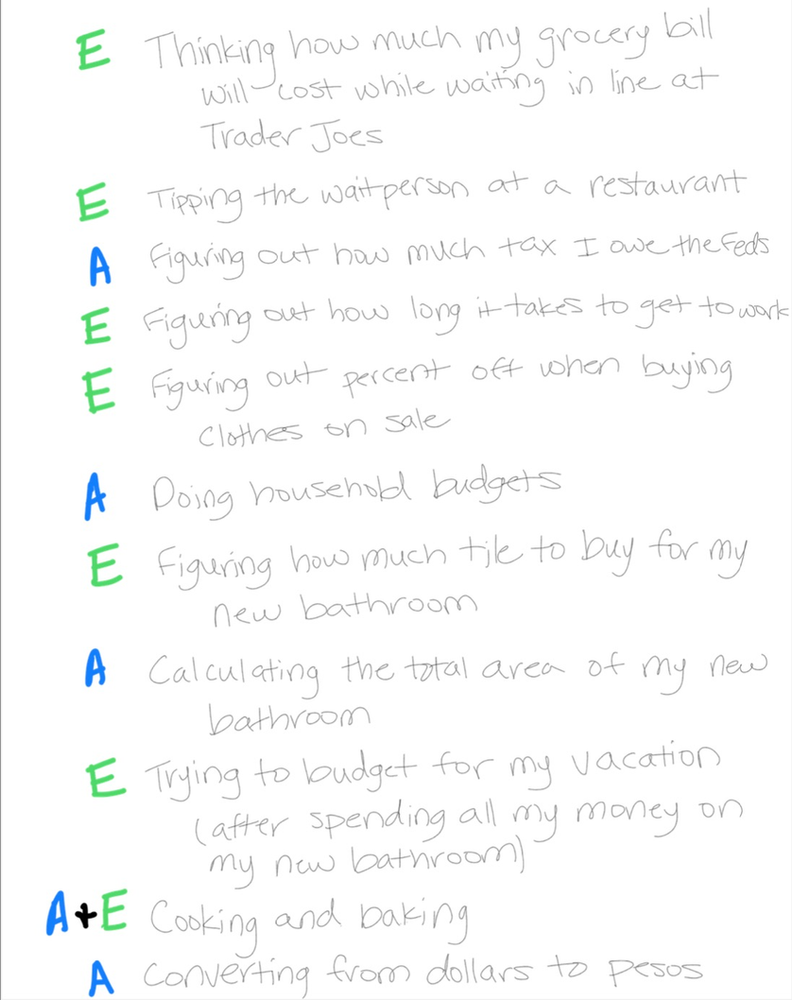 E Thinking how much my grocery bill
will cost while waiting in line at
Trader Joes
E Tipping the waitperson at a restaurant
A Figuring out how much tax I owe the Feds
E Figuring out how long it takes to get to work
E Figuring out percent off when buying
clothes on sale
A Doing household budgets
E Figuring how much tile to buy for my
new bathroom
A Calculating the total area of my new
bathroom
E Trying to budget for my vacation
(after spending all my money on
my new bathroom)
A+E Cooking and baking
A Converting from dollars to pesos